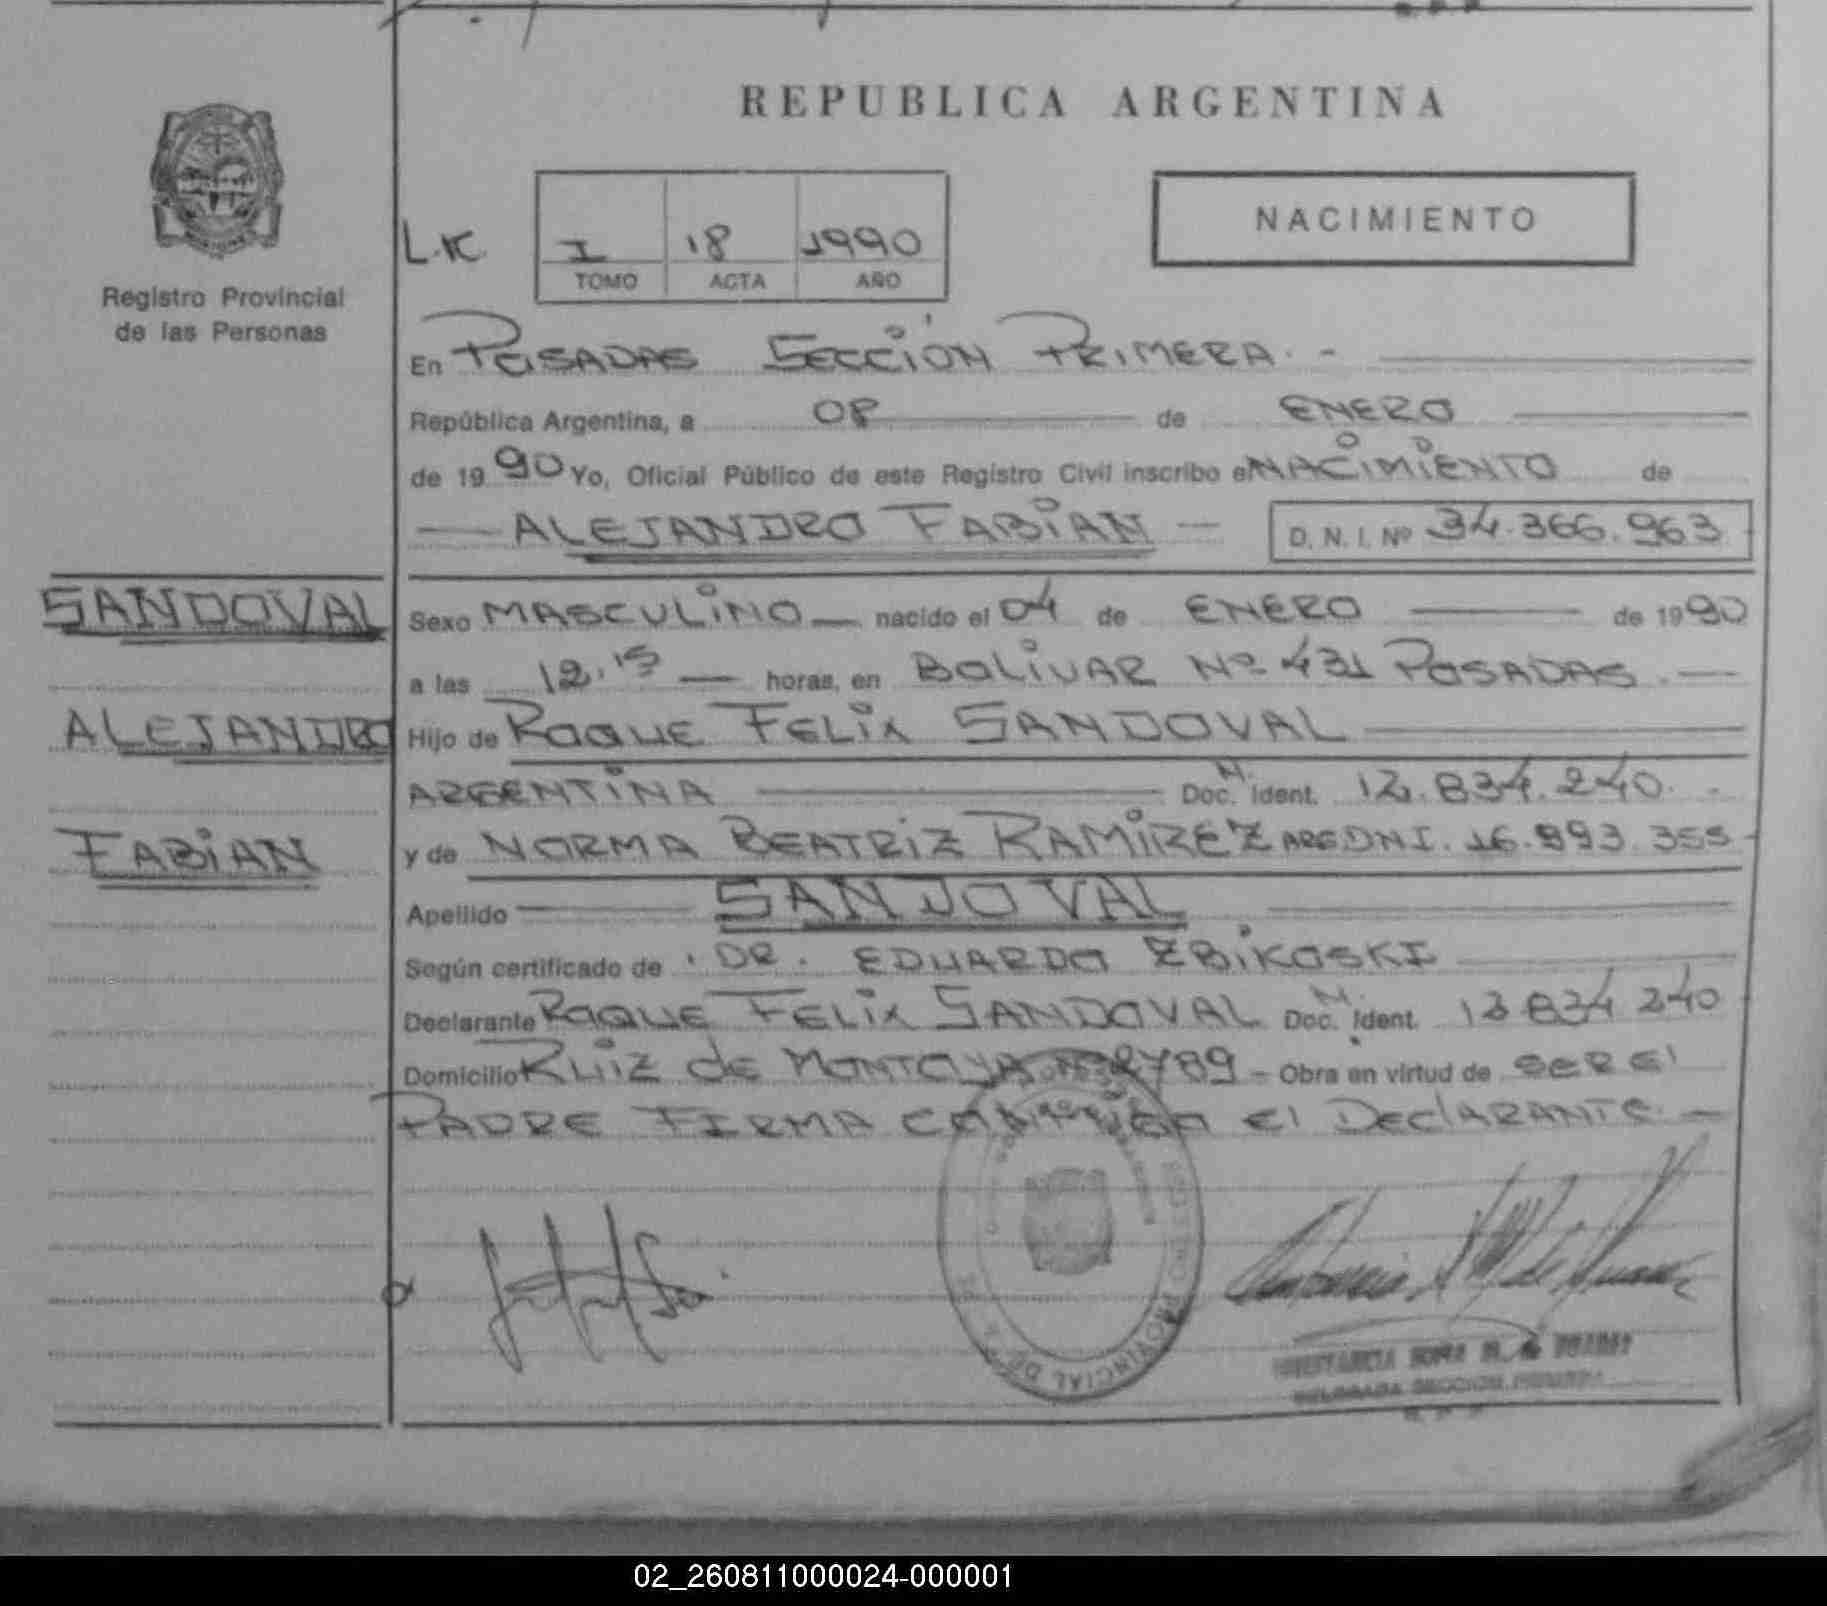 REPUBLICA ARGENTINA
NACIMIENTO
L.K. I 18 1990
TOMO ACTA AÑO
Registro Provincial
de las Personas
En POSADAS SECCIÓN PRIMERA. -
República Argentina, a 08 de ENERO
de 19 90 Yo, Oficial Público de este Registro Civil inscribo el NACIMIENTO de
ALEJANDRO FABIAN D. N. I. Nº 34.366.963
SANDOVAL
ALEJANDRO
FABIAN
Sexo MASCULINO nacido el 04 de ENERO de 19 90
a las 12.15 horas, en BOLIVAR Nº 431 POSADAS. -
Hijo de ROQUE FELIX SANDOVAL
ARGENTINA Doc. N. Ident. 12.834.240. -
y de NORMA BEATRIZ RAMIREZ ARG DNI. 16.993.355 -
Apellido SANDOVAL
Según certificado de DR. EDUARDO ZBIKOSKI
Declarante ROQUE FELIX SANDOVAL Doc. N. Ident. 12 834 240
Domicilio RUIZ de MONTOYA Nº 2789 - Obra en virtud de SER El
PADRE FIRMA El DEClARANTE. -
PROVINCIAL DE
02_260811000024-000001